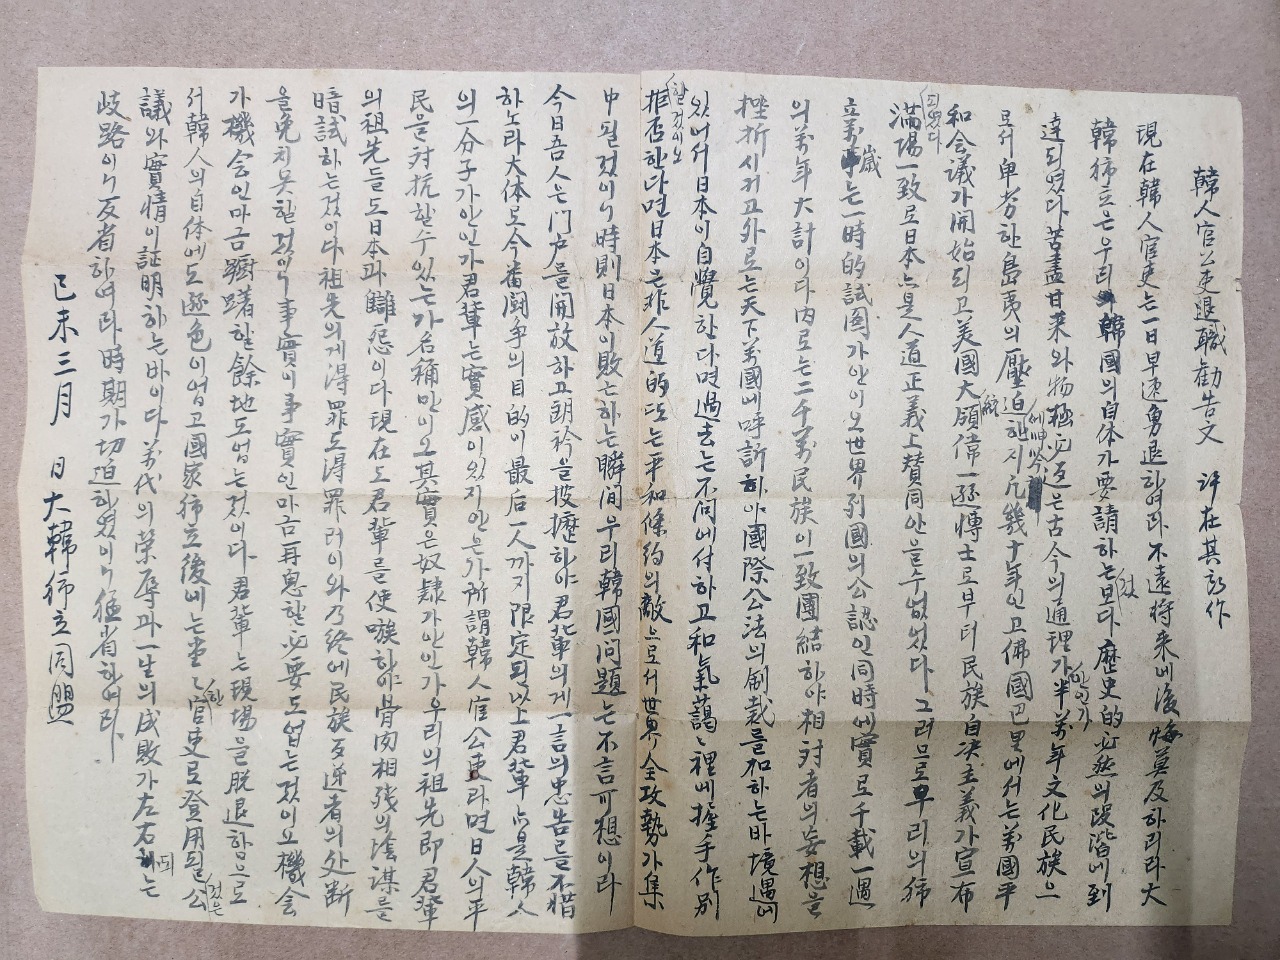 韓人官公吏退職勸告文 許在其 許作
現在韓人官吏는一日早速勇退하여라不遠將来에後悔莫及하리라大
韓독立은우리韓國의自体가要請하는것보다歷史的必然의段階에到
達되였다苦盡甘来와物極必返은古今의通理가안인가半萬年文化民族으
로서卑劣한島夷의壓迫에呻吟한지凡幾十年인고佛國巴里에서는萬國平
和会議가開始되고美國大統領偉一遜博士로부터民族自决主義가宣布되였다
滿場一致로日本亦是人道正義上賛同안을수없었다그러므로우리의독
立萬歲는一時的試圖가안이오世界列國의公認인同時에實로千載一遇
의萬年大計이다内로는二千萬民族이一致團結하야相対者의妄想을
挫折시키고外로는天下萬國에呼訴하야國際公法의制裁를加하는바境遇에
있어서日本이自覺한다면過去는不问에付하고和氣藹〻裡에握手作別할것이오
拒否한다면日本은非人道的또는平和條約의敵으로서世界全攻勢가集
中될것이니時則日本이敗亡하는瞬间우리韓國问題는不言可想이라
今日吾人은门户를開放하고胸衿을披攊하야君輩의게一言의忠告를不惜
하노라大体로今番闘争의目的이最后一人까지限定된以上君輩亦是韓人
의一分子가안인가君輩는實感이있지안은가所謂韓人官公吏라면日人의平
民을対抗할수있는가名称만이오其實은奴隷가안인가우리의祖先即君輩
의祖先들도日本과讎怨이다現在도君輩를使嗾하야骨肉相残의陰謀를
暗試하는것이다祖先의게得罪도得罪려이와乃終에民族反逆者의处断
을免치못할것이니事實이事實인마금再思할必要도업는것이오機会
가機会인마금躕躇할餘地도업는것이다君輩는現場을脱退함으로
서韓人의自体에도遜色이업고國家독立後에는堂〻한官吏로登用될것은公
議와實情이証明하는바이다萬代의榮辱과一生의成敗가左右되는
歧路이니反省하여라時期가切迫하였이니猛省하여라
己未三月 日大韓독立同盟